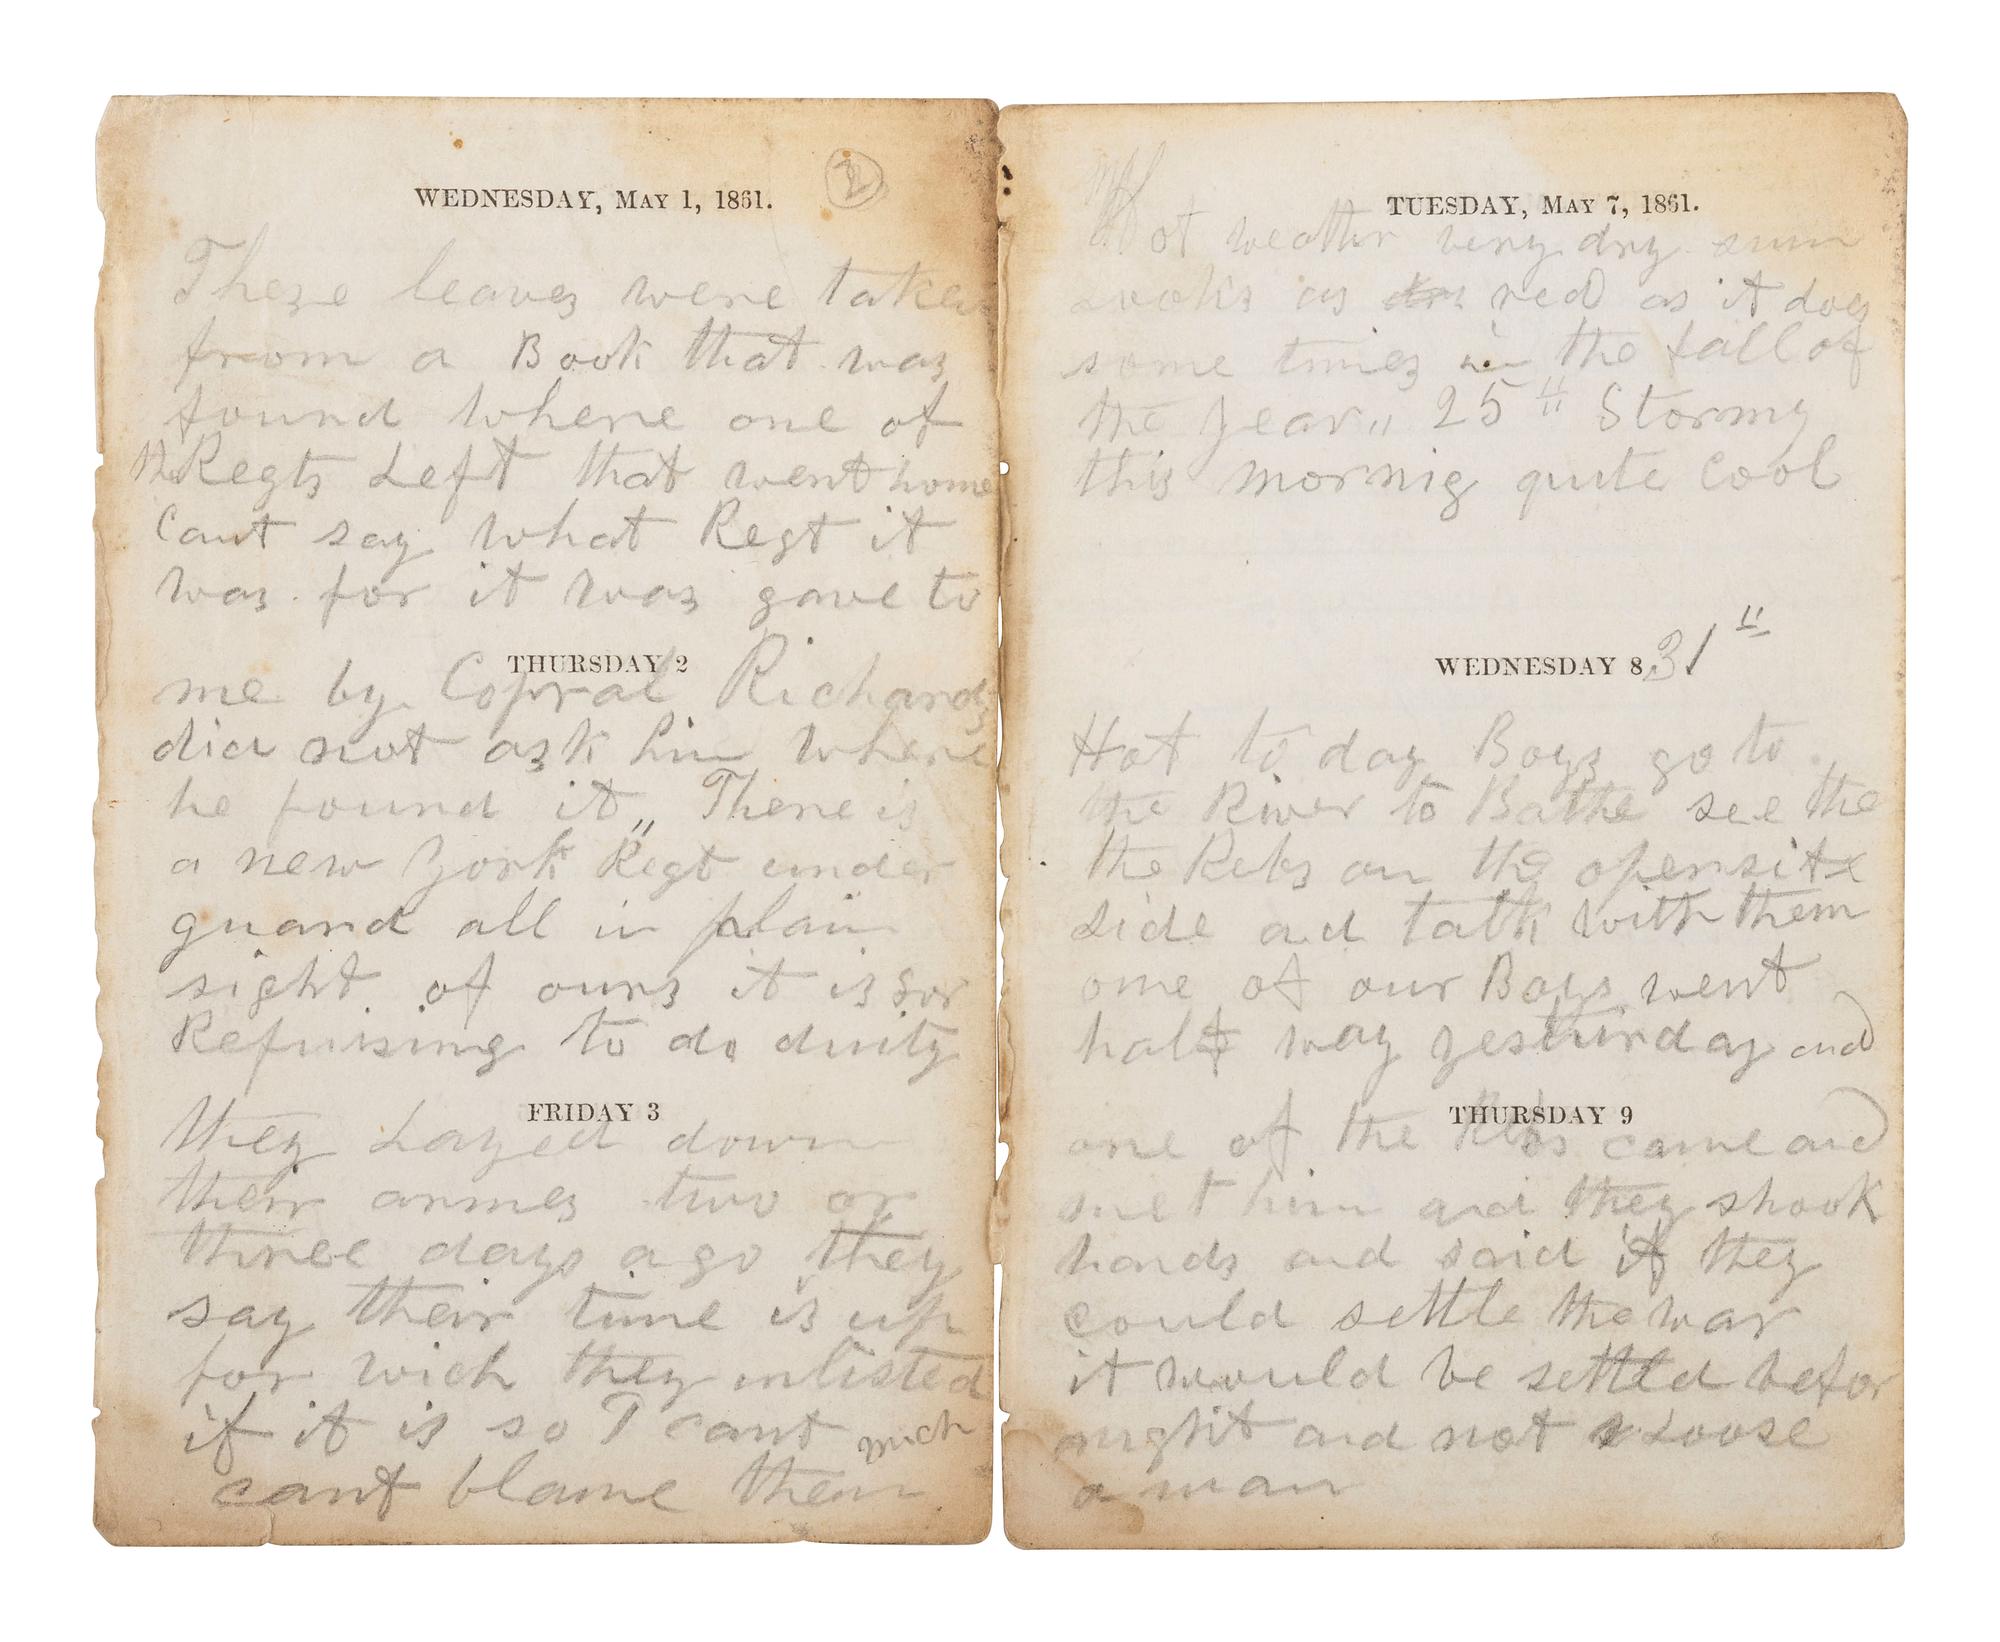 WEDNESDAY, MAY 1, 1861.
2
These leaves were taken
from a Book that was
found where one of
the Regts Left that went home
Cant say what Regt it
was for it was gave to
THURSDAY 2
me by Copral Richards
did not ask him where
he found it „ There is
a new York Regt under
guard all in plain
sight of ours it is for
Refuising to do duity
FRIDAY 3
they Layed down
their armes two or
three days ago they
say their time is up
for wich they inlisted
if it is so I cant much
cant blame them
TUESDAY, MAY 7, 1861.
Hot weather very dry sun
Looks as red as it does
some times in the fall of
the year „ 25" Stormy
this mornig quite Cool
WEDNESDAY 8 31"
Hot to day Boys go to
the River to Bathe see the
the Rebs on the opersite
side and talk with them
one of our Boys went
half way yesturday and
THURSDAY 9
one of the Rebs came and
met him and they shook
hands and said if they
could settle the war
it would be settled befor
night and not Loose
a man